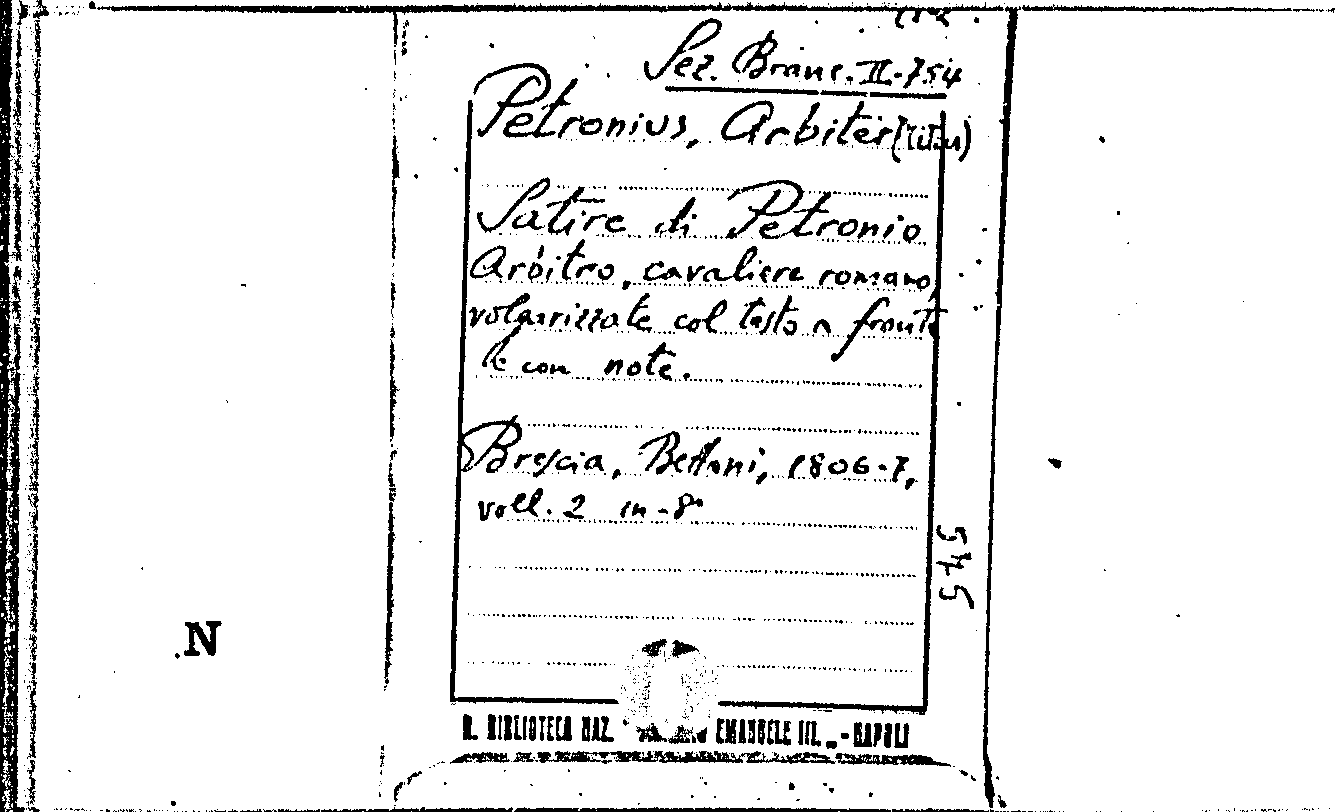 Sez. Branc. II-754
Petronius, Arbiter (Titus)
Satire di Petronio
Arbitro, cavaliere romano,
volgarizzate col testo a fronte
e con note.
Brescia, Bettoni, 1806-7,
voll. 2 in-8°
545
N
R. BIBLIOTECA NAZ. EMANUELE III. - NAPOLI